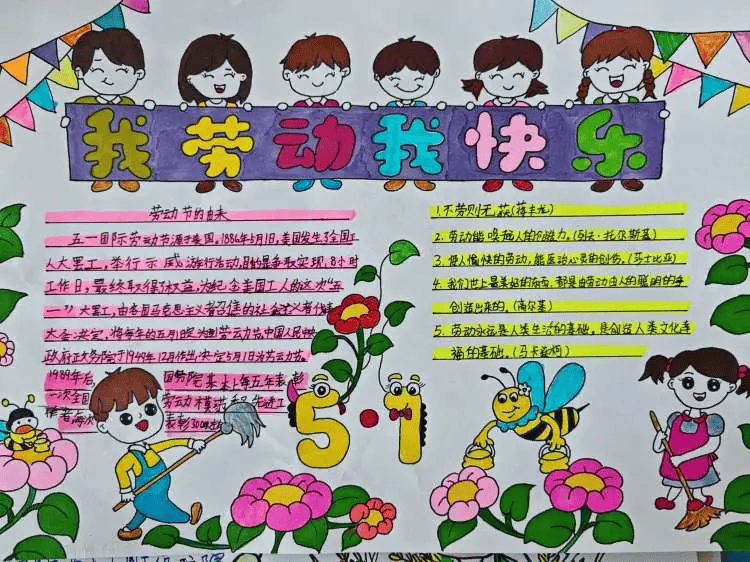 我劳动我快乐
劳动节的由来
五一国际劳动节源于美国，1886年5月1日，美国发生了全国工
人大罢工，举行示威游行活动，目的是争取实现，8小时
工作日，最终取得了权益，为纪念美国工人的这次“五
一”大罢工，由各国马克思主义者召集的社会主义者代表
大会，决定，将每年的五月一日定为国劳动节。中国人民中央
政府政务院于1949年12月作出决定5月1日为劳动节。
1989年后，国务院基本上每五年表彰
一次全国劳动模范和先进工
作者，每次表彰3000
5·1
1.不劳则无获(蒋丰龙)
2.劳动能唤起人的创造力。(列夫·托尔斯基)
3.使人愉快的劳动，能医治心灵的创伤。(马士比亚)
4.我们世上最美好的东西，都是由劳动由人的聪明的手
创造出来的。(高尔基)
5.劳动永远是人类生活的基础，是创造人类文化幸
福的基础。(马卡连柯)